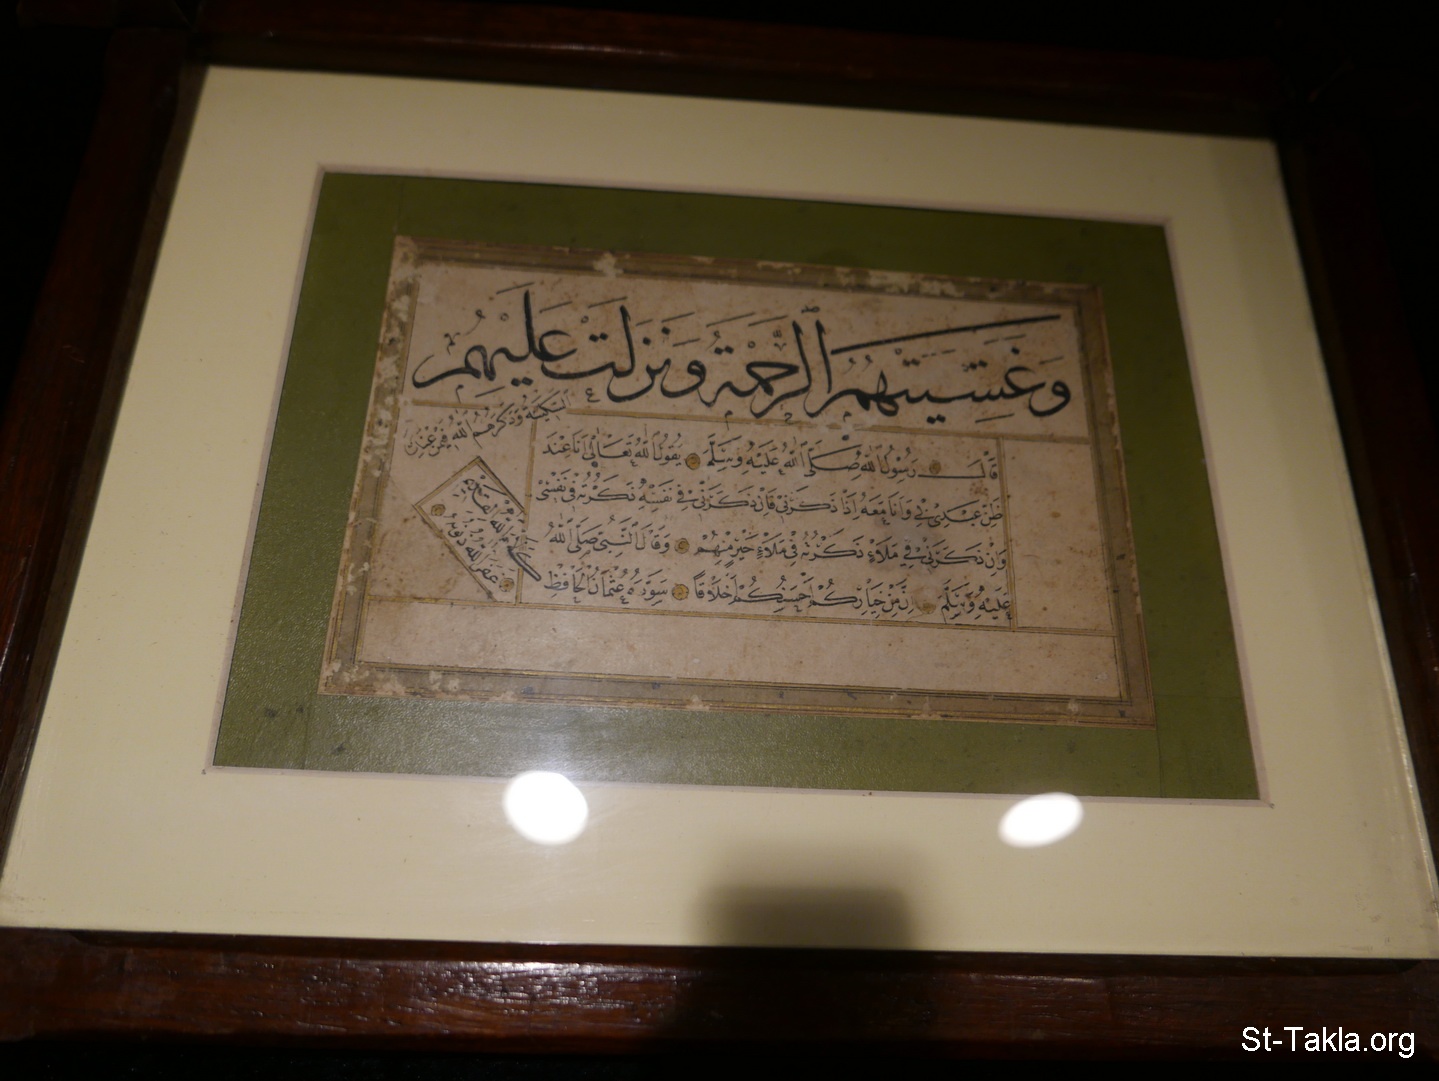 وَغَشِيَتْهُمُ الرَّحْمَةُ وَنَزَلَتْ عَلَيْهِمُ
السَّكِينَةُ وَذَكَرَهُمُ اللهُ فِيمَنْ عِنْدَهُ
قَالَ رَسُولُ اللهِ صَلَّى اللهُ عَلَيْهِ وَسَلَّمَ يَقُولُ اللهُ تَعَالَى اَنَا عِنْدَ
ظَنِّ عَبْدِى بِى وَاَنَا مَعَهُ اِذَا ذَكَرَنِى فَاِنْ ذَكَرَنِى فِى نَفْسِهِ ذَكَرْتُهُ فِى نَفْسِى
وَاِنْ ذَكَرَنِى فِى مَلَاءٍ ذَكَرْتُهُ فِى مَلَاءٍ خَيْرٍ مِنْهُمْ وَقَالَ النَّبِىُّ صَلَّى اللهُ
عَلَيْهِ وَسَلَّمَ اِنَّ مِنْ خِيَارِكُمْ اَحْسَنَكُمْ اَخْلَاقًا سَوَّدَهُ عُثْمَانُ الْحَافِظُ
غفر الله ذنوبه
St-Takla.org